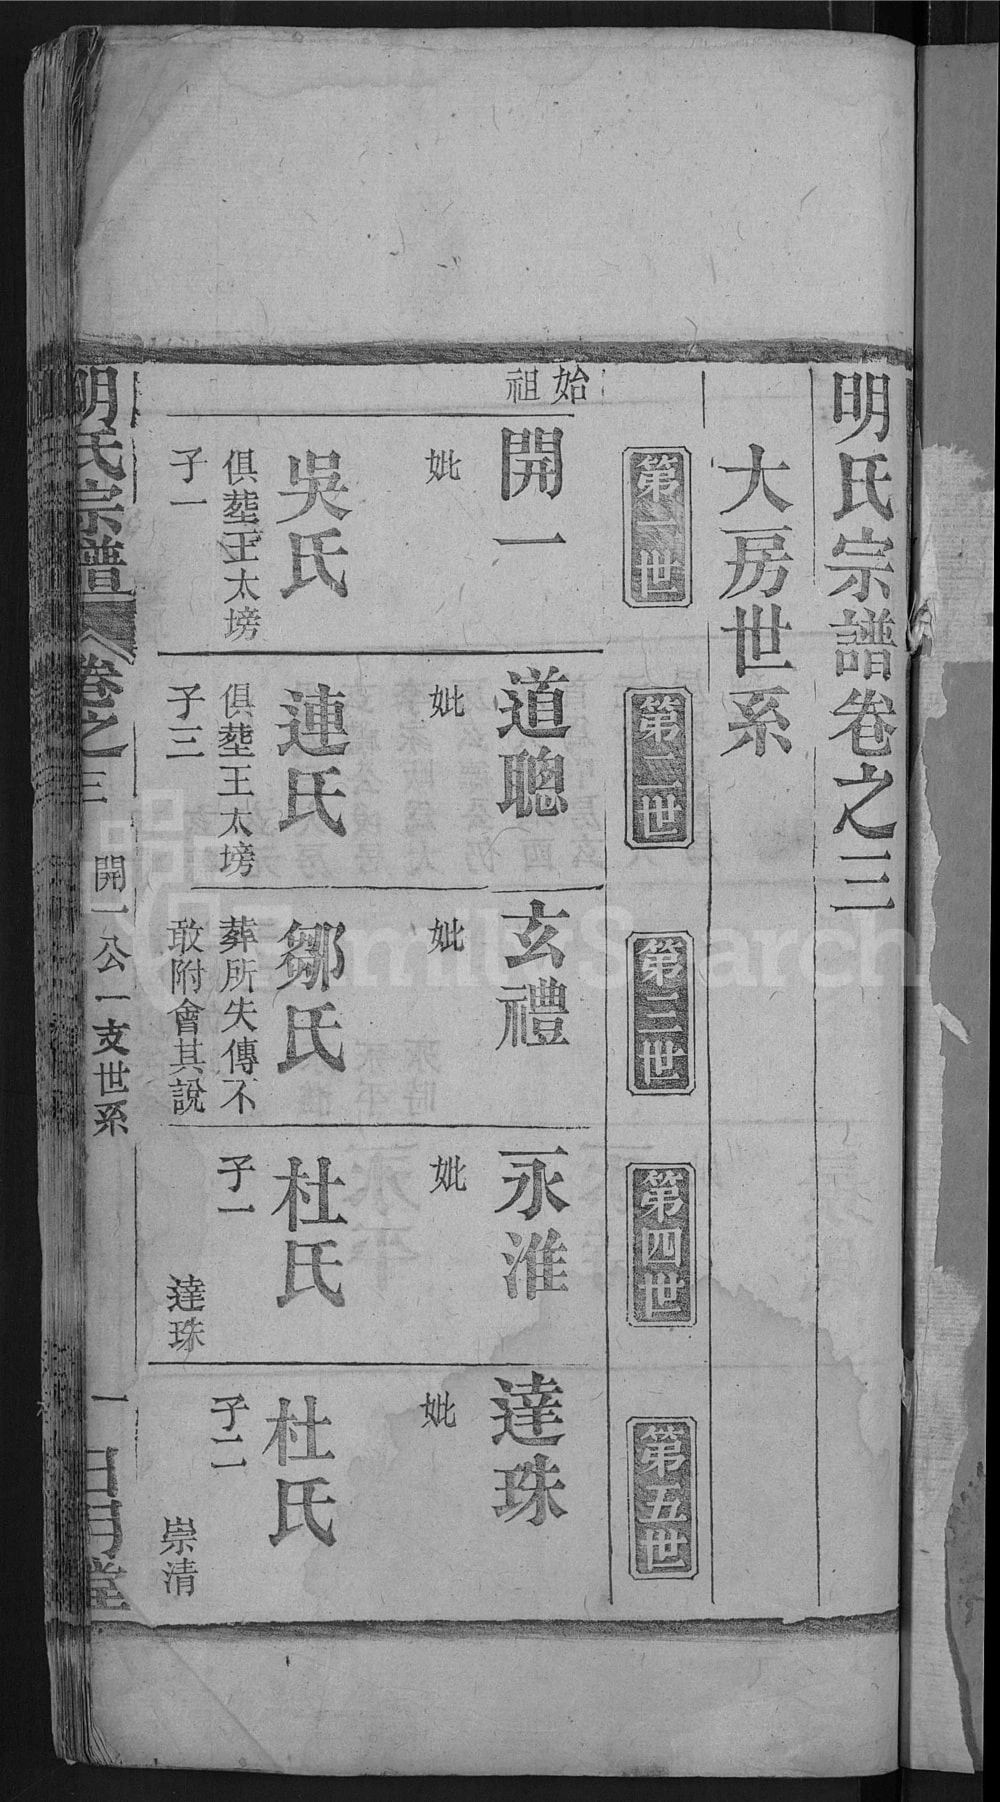 明氏宗譜卷之三
大房世系
第一世
第二世
第三世
第四世
第五世
始祖
開一
妣
吳氏
俱塟王太塝
子一
道聰
妣
連氏
俱塟王太塝
子三
玄禮
妣
鄒氏
葬所失傳不
敢附會其說
永淮
妣
杜氏
子一
達珠
達珠
妣
杜氏
子二
崇清
明氏宗譜
卷之三
開一公一支世系
一
日月堂